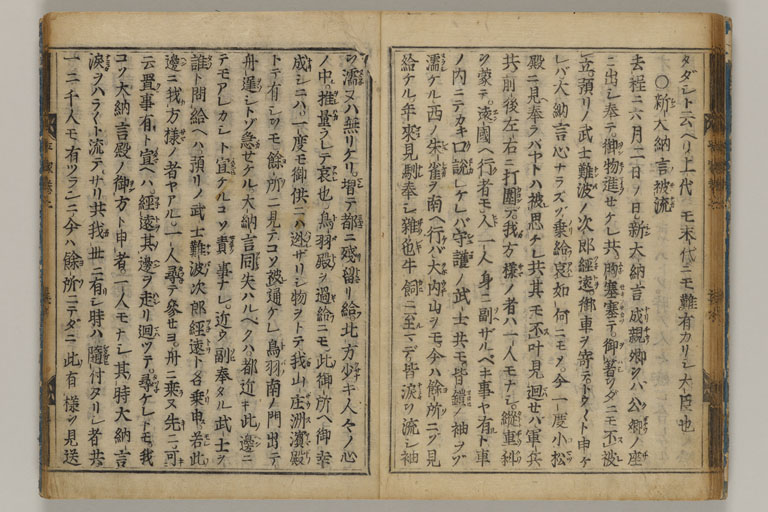 タダシト云ヘリ上代ニモ末代ニモ難有カリシ大臣也
○新大納言被流
去程ニ六月二日ノ日新大納言成親卿ヲハ公卿ノ座
ニ出シ奉テ御物進セケレ共胸塞テ御箸ヲダニモ不被
立預リノ武士難波ノ次郎經遠御車ヲ寄テトク〱ト申ケ
レバ大納言心ナラズゾ乗給哀如何ニモ〆今一度小松
殿ニ見奉ラバヤトハ被思ケレ共其モ不叶見廻セバ軍兵
共前後左右ニ打圍テ我方様ノ者ハ一人モナシ縦重科
ヲ蒙テ遠國ヘ行者モ人一人身ニ副ザルベキ事ヤ有ト車
ノ内ニテカキロ說レケレバ守護ノ武士共モ皆鎧ノ袖ヲゾ
濡ケル西ノ朱雀ヲ南ヘ行バ大内山ヲモ今ハ餘所ニゾ見
給ケル年來見馴奉シ雑色牛飼ニ至マデ皆涙ヲ流シ袖
ヲ濡ヌハ無リケリ増テ都ニ殘留リ給北方少キ人々ノ心
ノ中推量ラレテ哀也鳥羽殿ヲ過給ニモ此御所ヘ御幸
成シニハ一度モ御供ニハ迯ザリシ物ヲトテ我山庄洲濱殿
トテ有シヲモ餘所ニ見テコソ被通ケレ鳥羽ノ南ノ門出テ
舟遲シトゾ急セケル大納言同失ハルベクハ都近キ此邊ニ
テモアレカシト宣ケルコソ責ノ事ナレ近ウ副奉タル武士ヲ
誰ト問給ヘハ預リノ武士難波次郎經遠ト名乗申若此
邊ニ我方様ノ者ヤアル一人尋テ參セヨ舟ニ乗ヌ先ニ可
云置事有ト宣ヘハ經遠其邊ヲ走リ迴ツテ尋ケレトモ我
コソ大納言殿ノ御方ト申者一人モナシ其時大納言
涙ヲハラ〱ト流テサリ共我世ニ有シ時ハ隨付タリシ者共
一二千人モ有ツラン今ハ餘所ニテダニ此有様ヲ見送